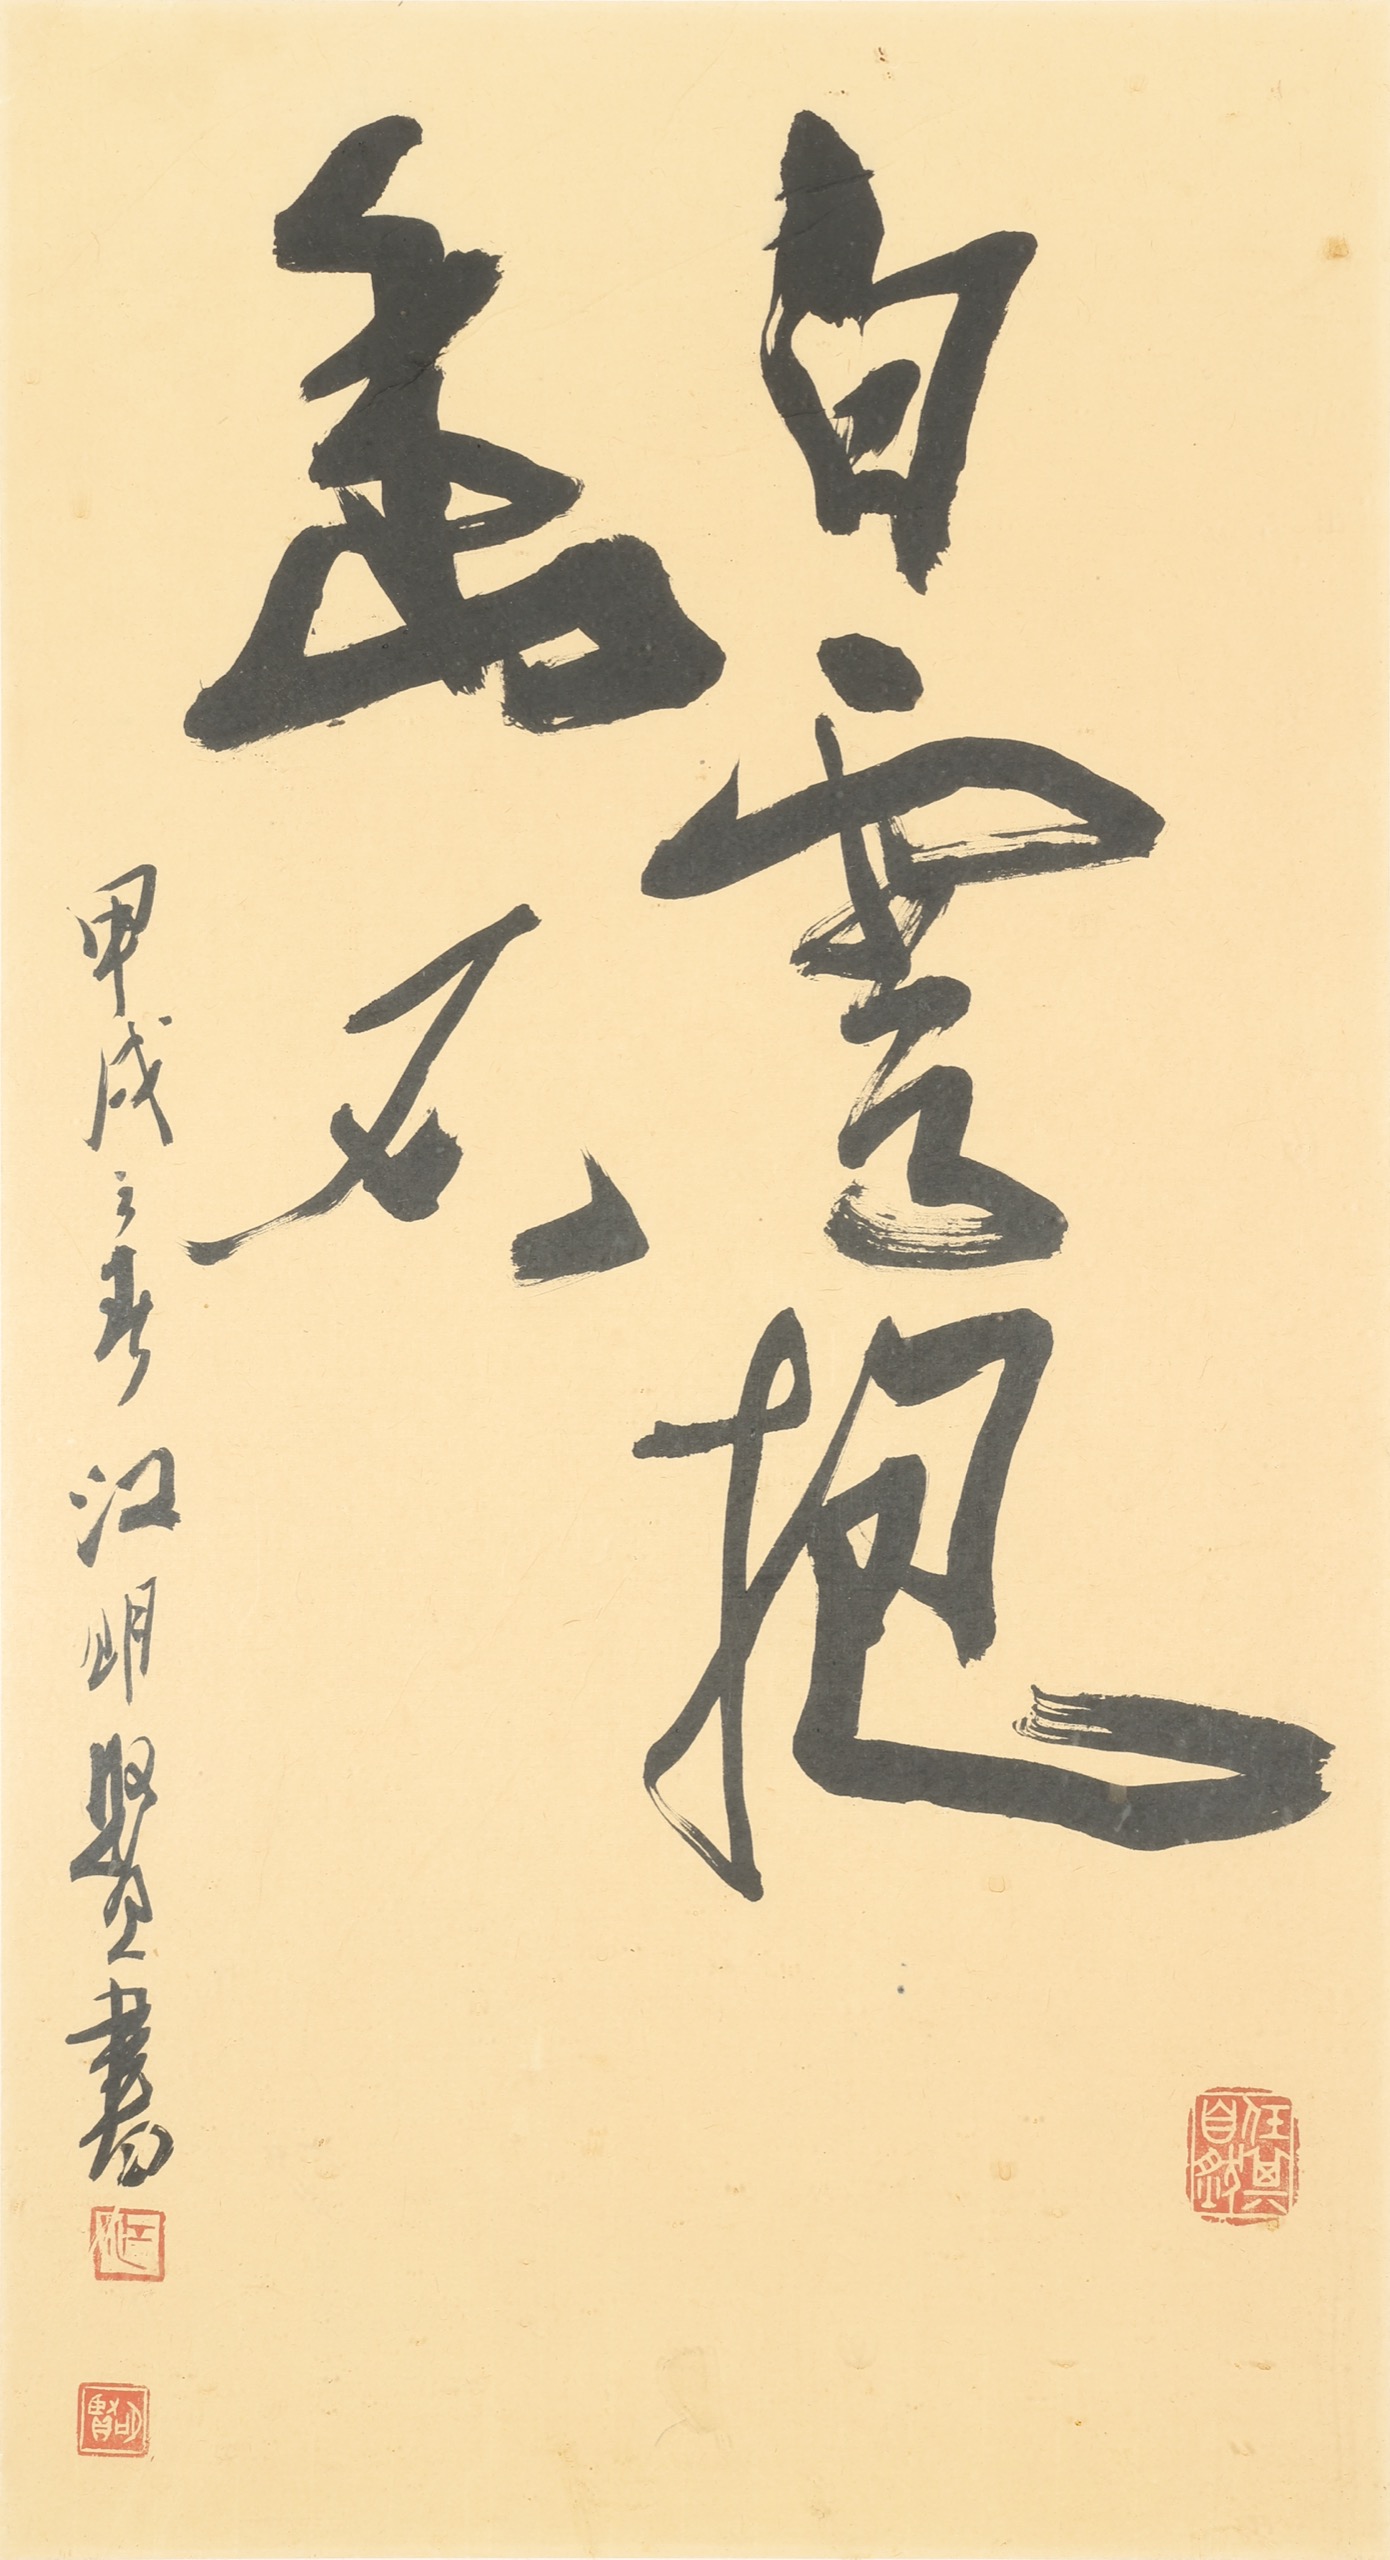 白雲抱
幽石
甲戌之春 江明賢書
江
明賢
任其自然